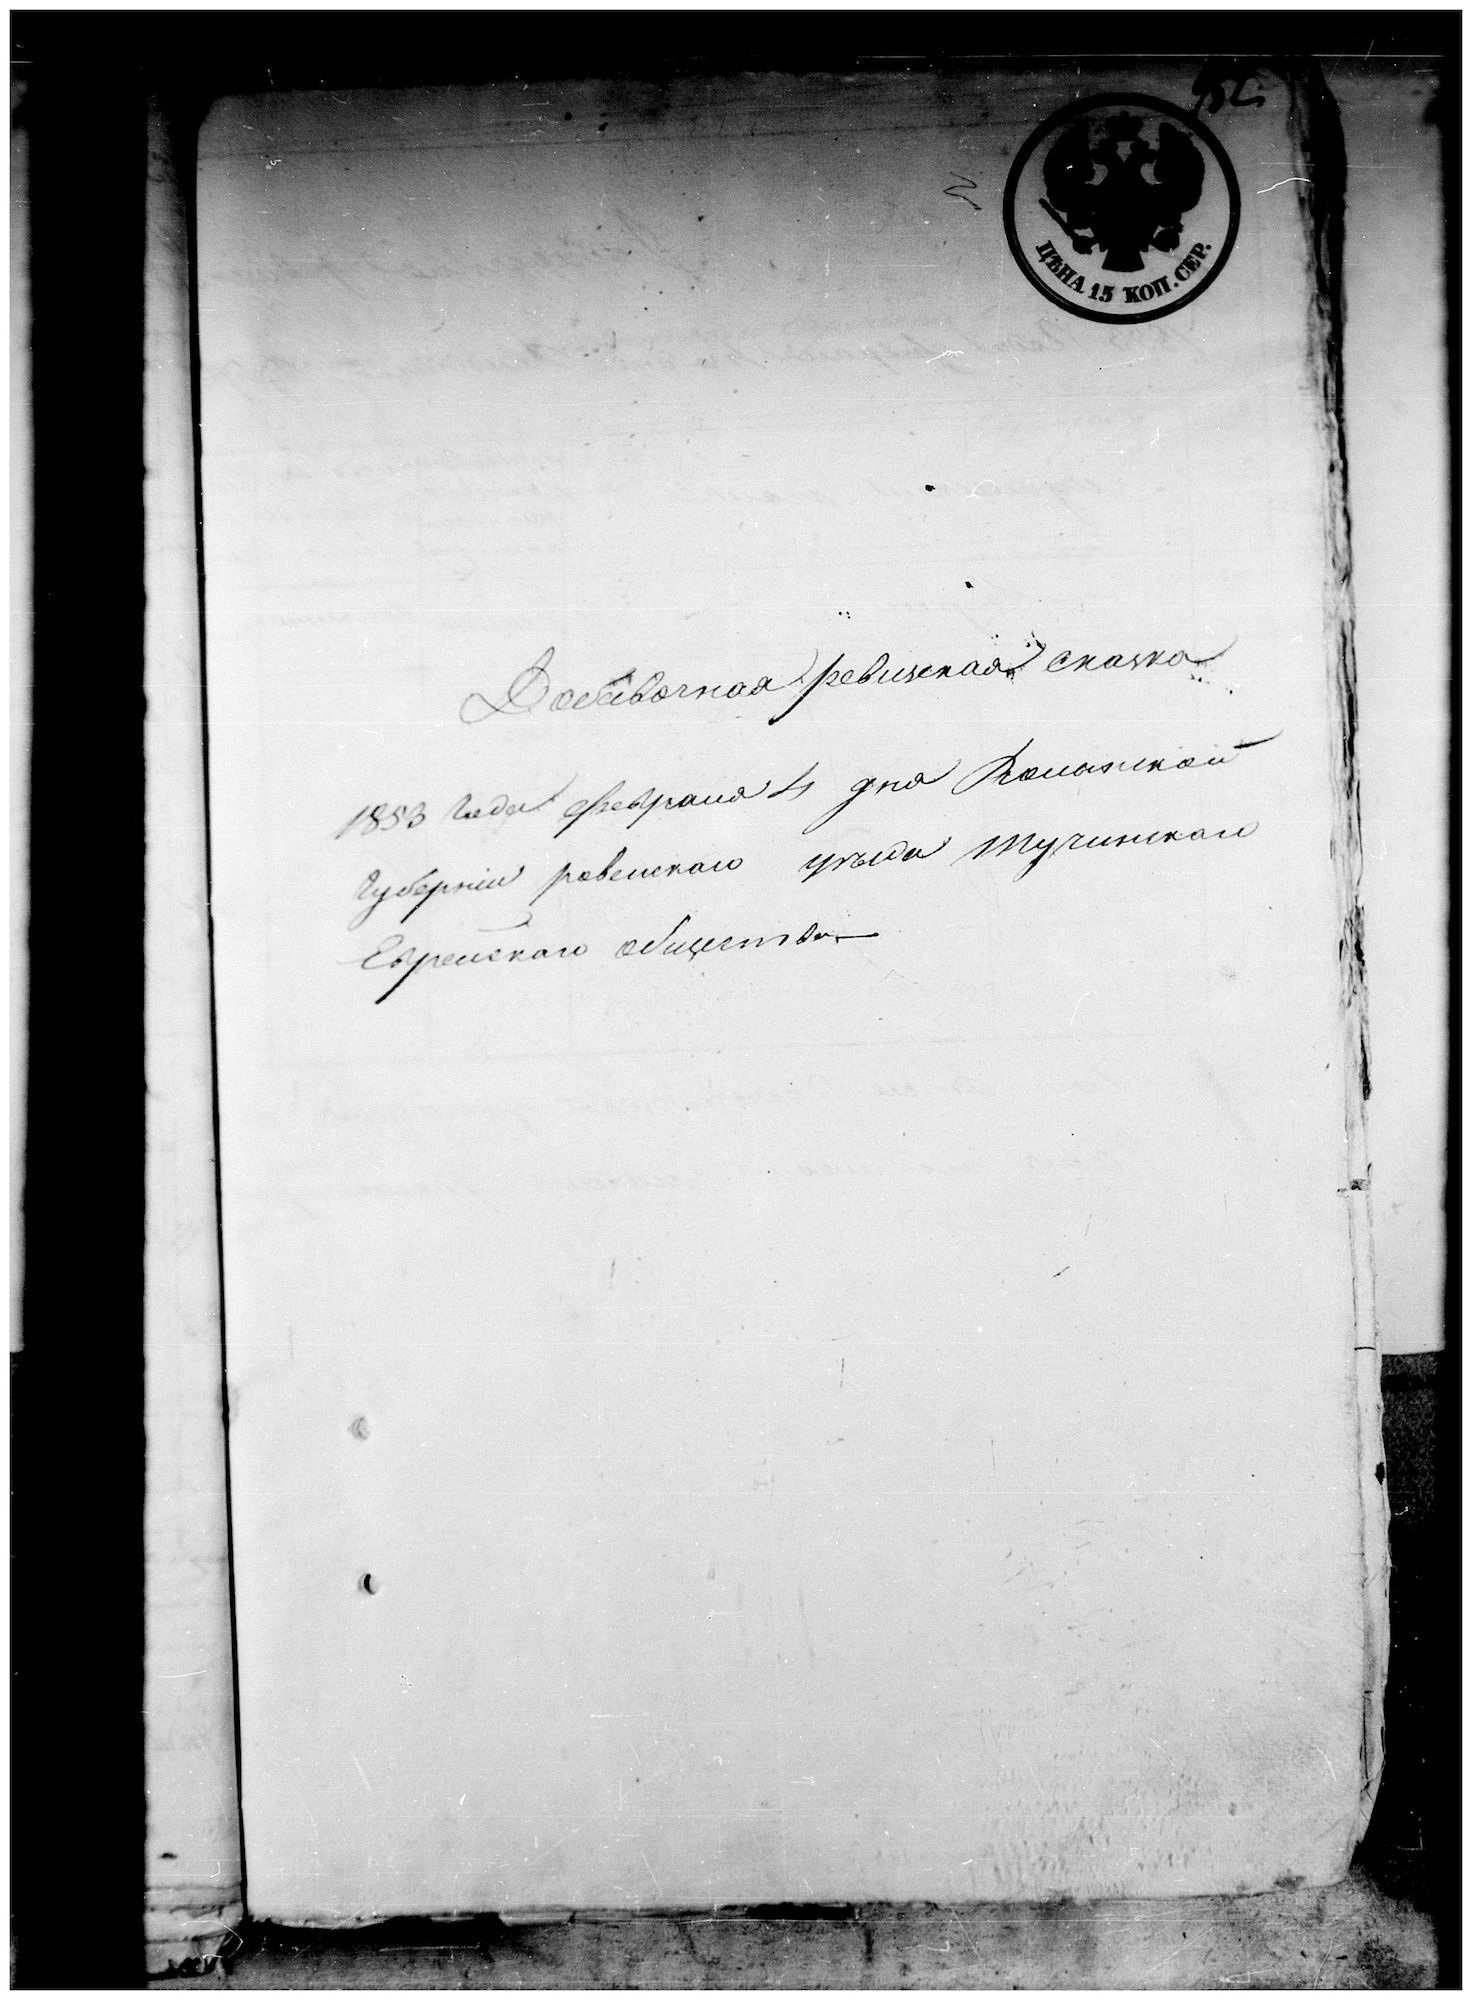 ЦѢНА 15 КОП. СЕР.
Добавочная ревизская сказка
1853 Года февраля 4 дня Волынской
Губернiи ровенскаго уѣзда Тучинскаго
Еврейскаго общества